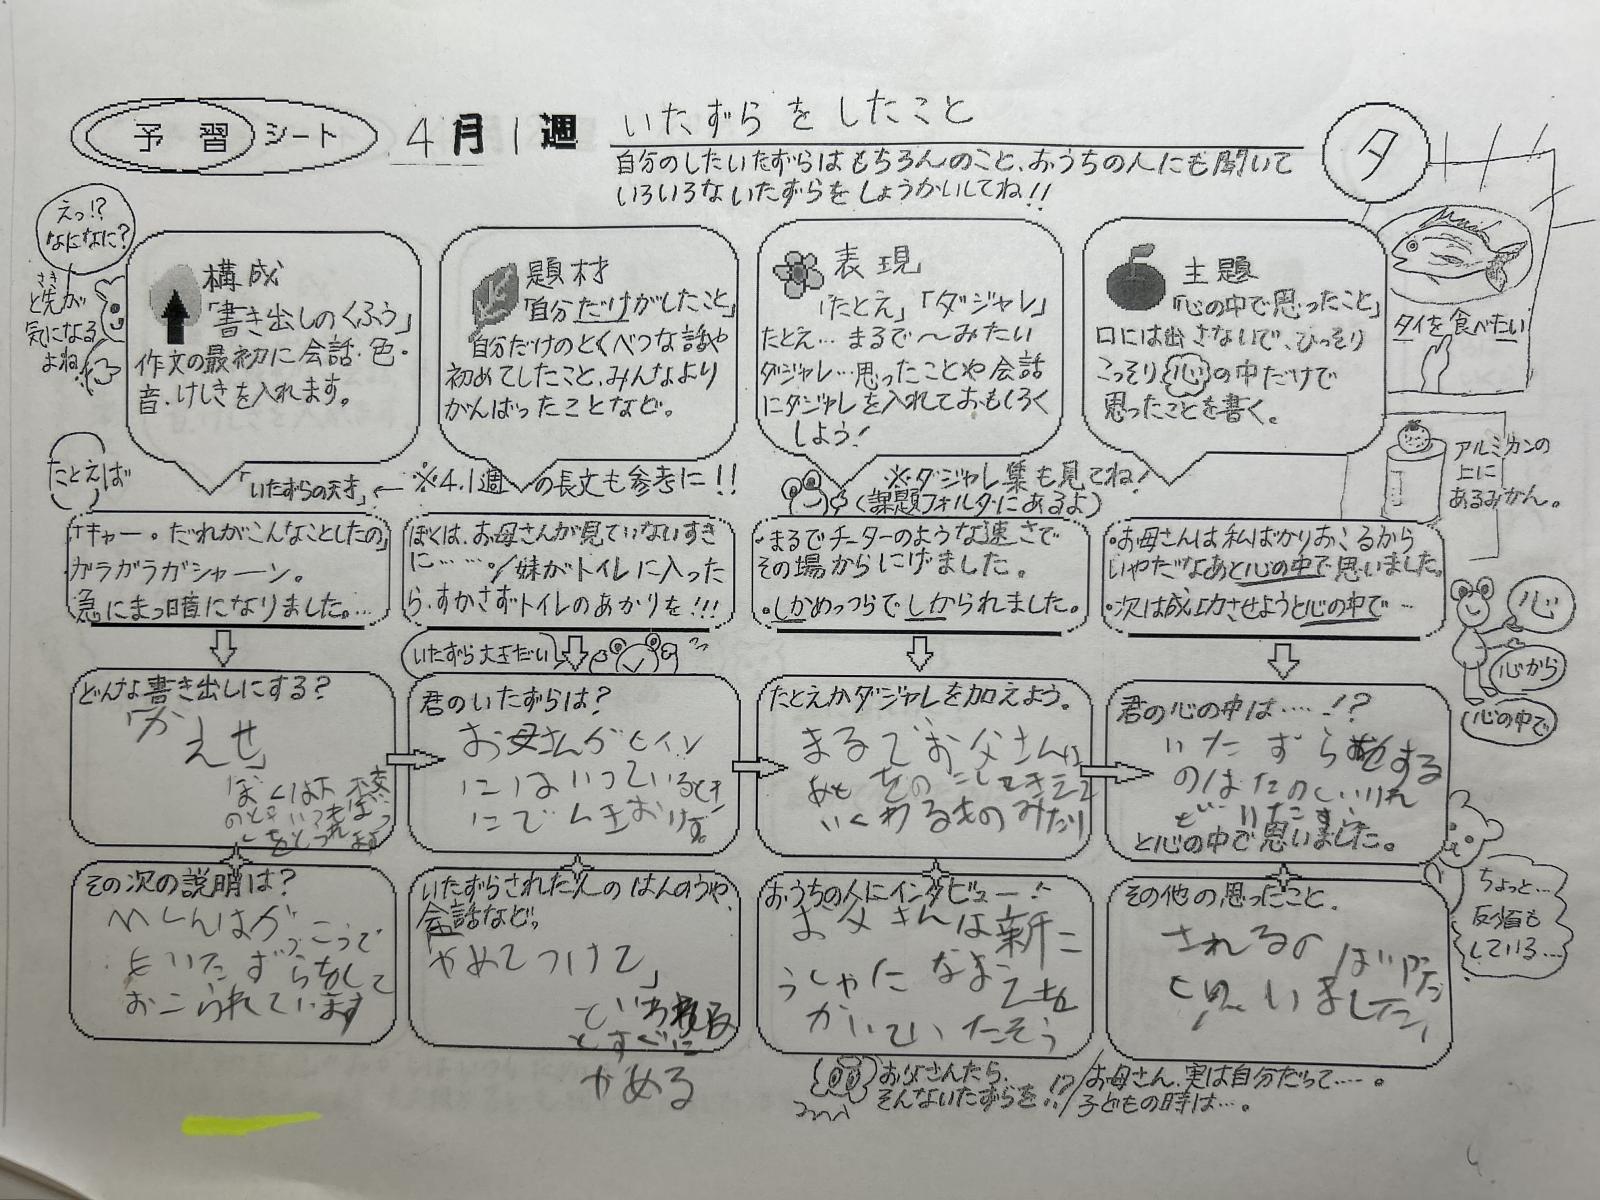 予習シート 4月1週 いたずらをしたこと
自分のしたいたずらはもちろんのこと、おうちの人にも聞いて
いろいろないたずらをしょうかいしてね!!
タ
えっ!?
なになに?
さき
と先が
気になる
よね。
構成
「書き出しのくふう」
作文の最初に会話・色・
音・けしきを入れます。
題材
「自分だけがしたこと」
自分だけのとくべつな話や
初めてしたこと、みんなより
がんばったことなど。
表現
「たとえ」「ダジャレ」
たとえ…まるで〜みたい
ダジャレ…思ったことや会話
にダジャレを入れておもしろく
しよう!
主題
「心の中で思ったこと」
口には出さないで、ひっそり
こっそり心の中だけで
思ったことを書く。
タイを食べたい
アルミカンの
上に
あるみかん。
たとえば
「いたずらの天才」←※4.1週の長文も参考に!!
※ダジャレ集も見てね!
(課題フォルダにあるよ)
「キャー。だれがこんなことしたの」
ガラガラガシャーン。
急にまっ暗になりました。…
ぼくは、お母さんが見ていないすき
に……。/妹がトイレに入った
ら、すかさずトイレのあかりを!!!
・まるでチーターのような速さで
その場からにげました。
・しかめっつらでしかられました。
・お母さんは私ばかりおこるから
いやだなあと心の中で思いました。
・次は成功させようと心の中で…
いたずら大王だい
心
心から
心の中で
どんな書き出しにする?
かえせ」
ぼくは
君のいたずらは?
お母さんが
にはいっているとき
にでんきを
たとえかダジャレを加えよう。
まるでお父さんに
君の心の中は……!?
いたずらをする
のはたのしいけれ
と心の中で思いました。
その次の説明は?
といたずらをして
おこられています
いたずらされた人のはんのうや、
会話など。
「やめてつけて」
といわれる
とすぐに
やめる
おうちの人にインタビュー!
お父さんは新
うしゃになまえを
かいていたそう
その他の思ったこと。
されるの
と思いました。
ちょっと…
反省も
している…
お父さんたら、
そんないたずらを!?
お母さん、実は自分だって……。
子どもの時は…。